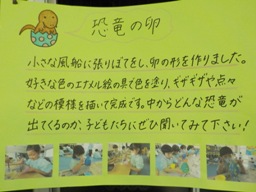 恐竜の卵
小さな風船に張りぼてをし、卵の形を作りました。
好きな色のエナメル絵の具で色を塗り、ギザギザや点々
などの模様を描いて完成です。中からどんな恐竜が
出てくるのか、子どもたちにぜひ聞いてみて下さい!